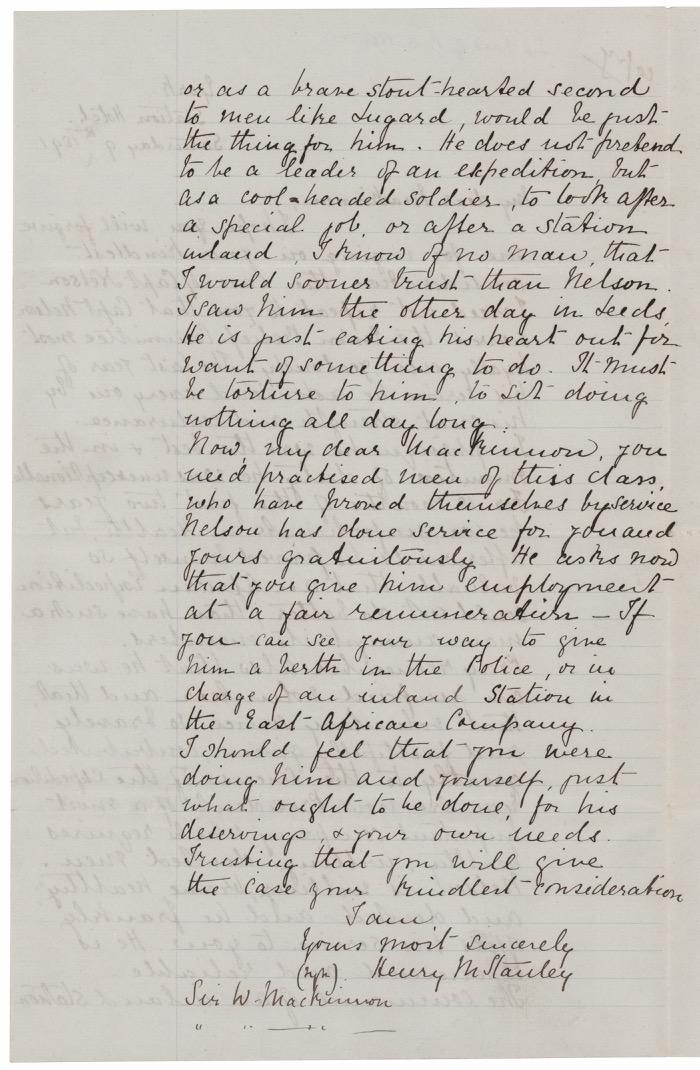 or as a brave stout-hearted second
to men like Lugard, would be just
the thing for him. He does not pretend
to be a leader of an expedition, but
as a cool-headed soldier, to look after
a special job, or after a station
inland, I know of no man, that
I would sooner trust than Nelson.
I saw him the other day in Leeds,
He is just eating his heart out for
want of something to do. It must
be torture to him, to sit doing
nothing all day long.
Now, my dear Mackinnon, you
need practised men of this class,
who have proved themselves by service
Nelson has done service for you and
yours gratuitously He asks now
that you give him employment
at a fair remuneration – If
you can see your way, to give
him a berth in the Police, or in
charge of an inland Station in
the East African Company.
I should feel that you were
doing him and yourself, just
what ought to be done, for his
deservings, & your own needs.
Trusting that you will give
the case your kindlest consideration
I am,
Yours most sincerely
Henry M Stanley
Sir W. Mackinnon